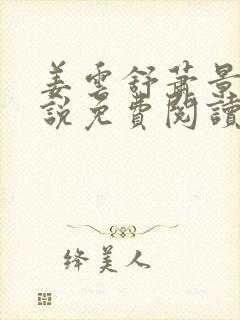 姜雲舒蕭景
說免費閱讀
絳美人